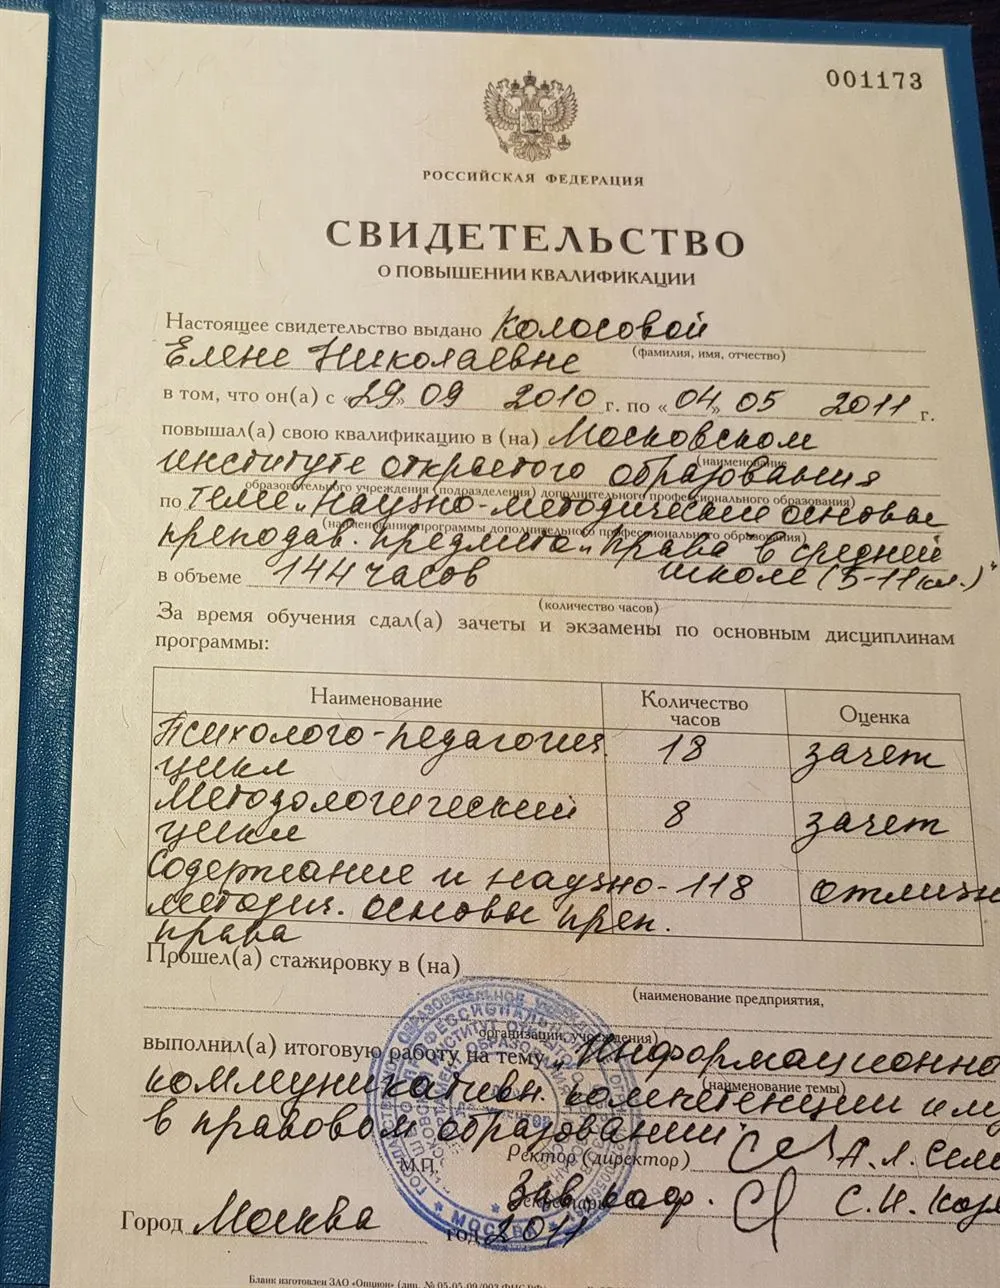 001173
РОССИЙСКАЯ ФЕДЕРАЦИЯ
СВИДЕТЕЛЬСТВО
О ПОВЫШЕНИИ КВАЛИФИКАЦИИ
Настоящее свидетельство выдано Колосовой
(фамилия, имя, отчество)
Елене Николаевне
в том, что он(а) с «29» 09 2010 г. по «04» 05 2011 г.
повышал(а) свою квалификацию в (на) Московском
(наименование
институте открытого образования
образовательного учреждения (подразделения) дополнительного профессионального образования)
по теме „Научно-методические основы
(наименование программы дополнительного профессионального образования)
преподав. предмета „Права в средней
в объеме 144 часов школе (5-11 кл.)"
(количество часов)
За время обучения сдал(а) зачеты и экзамены по основным дисциплинам
программы:
Наименование Количество часов Оценка
Психолого-педагогич. 18 зачет
цикл
Методологический 8 зачет
цикл
Содержание и научно- 118 отличн
методич. основы преп.
права
Прошел(а) стажировку в (на)
(наименование предприятия,
организации, учреждения)
выполнил(а) итоговую работу на тему „Информационно
(наименование темы)
коммуникативн. компетенции
в правовом образовании"
Ректор (директор) А.Л. Семе
М.П.
Зав каф. С.И.
Секретарь
Город Москва год 2011
МОСКВА
Бланк изготовлен ЗАО «Опцион»